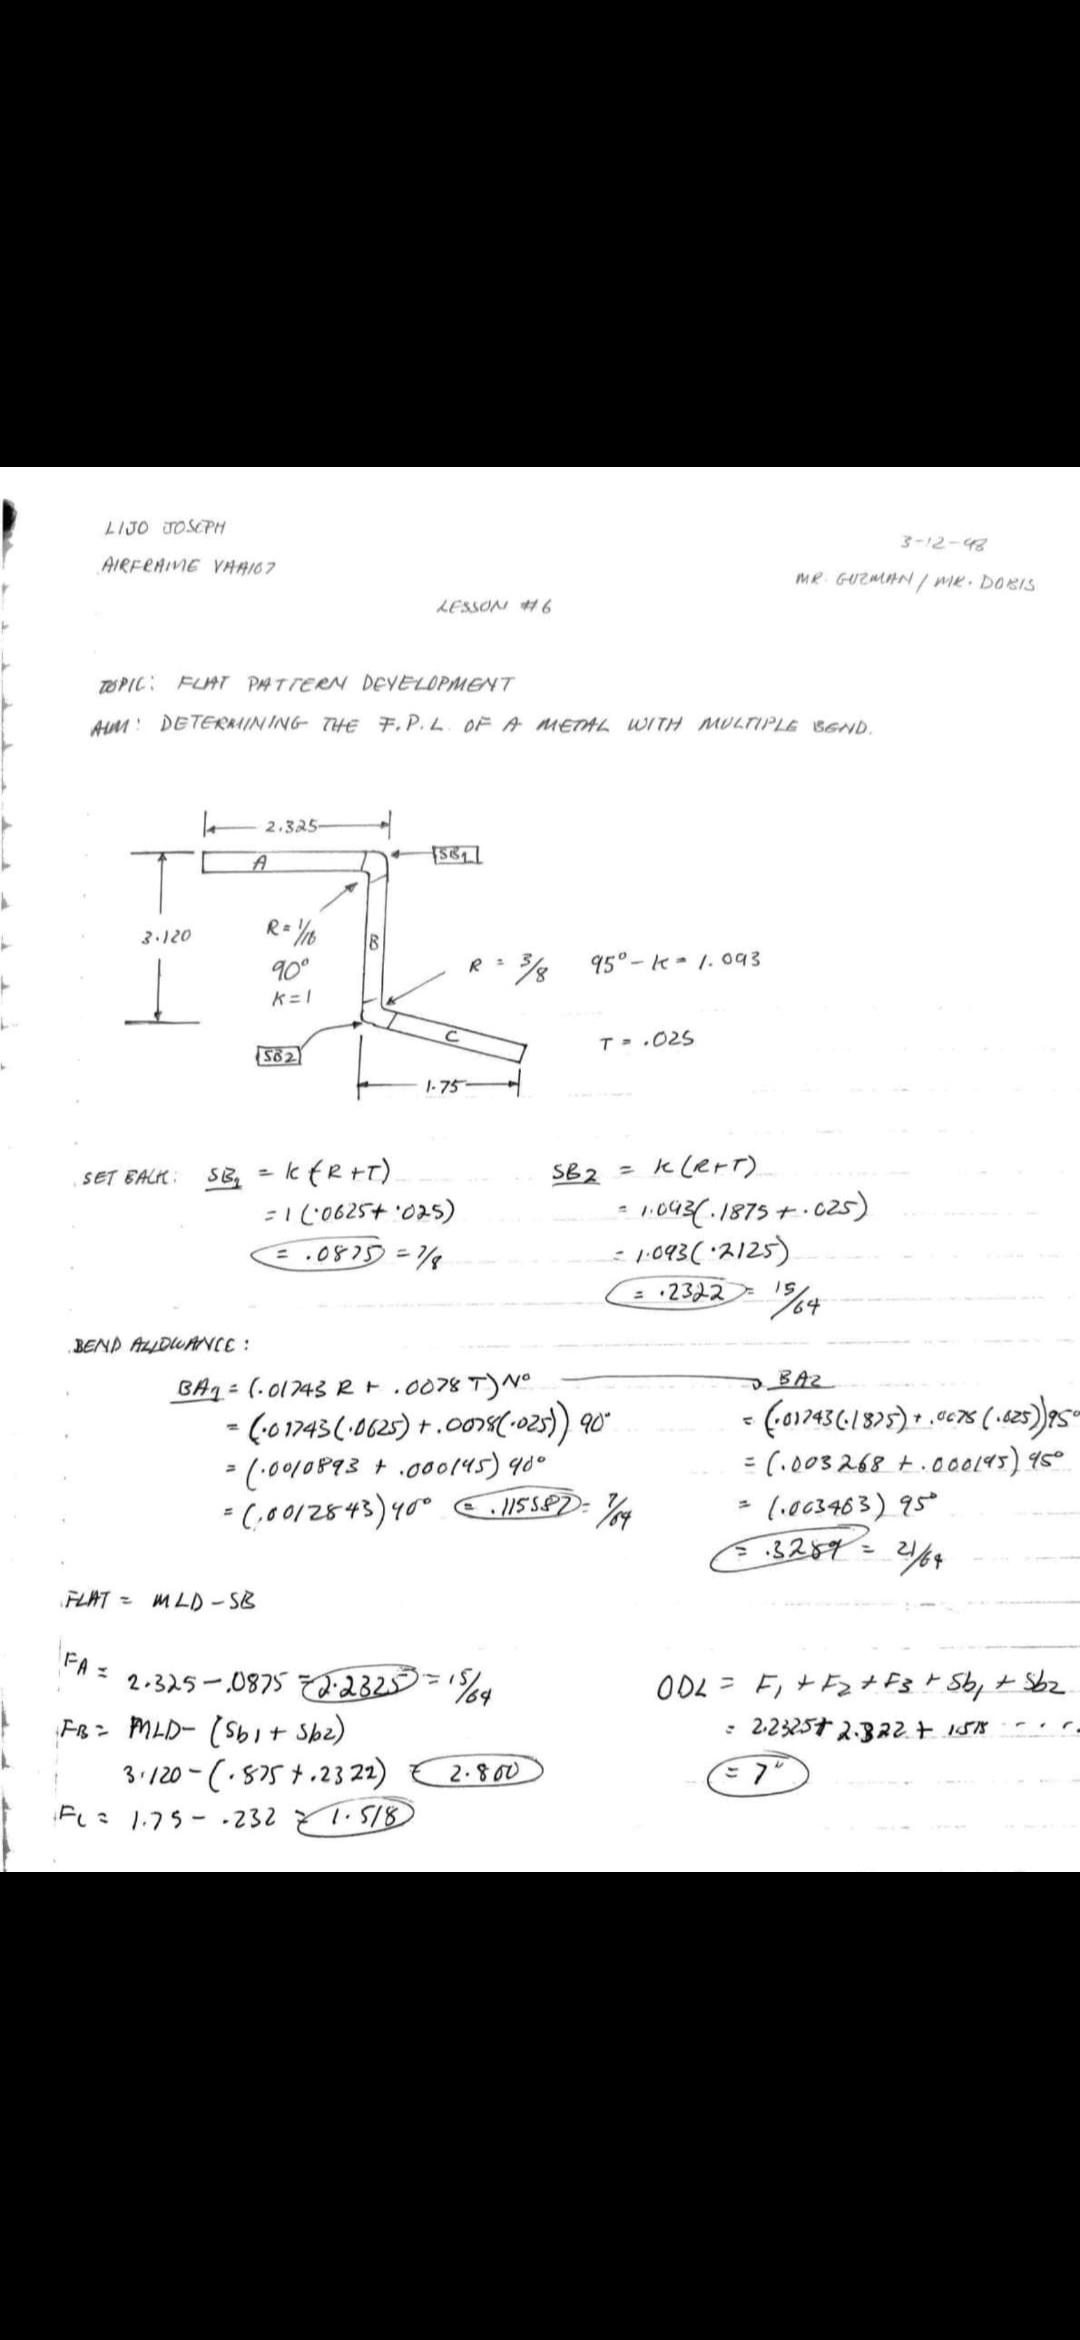 LIJO JOSEPH
3-12-98
AIRFRAME VAA107
MR. GUZMAN / MR. DOBIS
LESSON #6
TOPIC: FLAT PATTERN DEVELOPMENT
AIM: DETERMINING THE F.P.L. OF A METAL WITH MULTIPLE BEND.
2.325
A
SB1
3.120
R = 1/16
90°
K = 1
B
R = 3/8 95° - K = 1.093
C
T = .025
SB2
1.75
SET BACK: SB1 = K (R+T)
= 1 (.0625 + .025)
= .0875 = 7/8
SB2 = K (R+T)
= 1.093(.1875 + .025)
= 1.093(.2125)
= .2322 = 15/64
BEND ALLOWANCE:
BA1 = (.01743 R + .0078 T) N°
= (.01743(.0625) + .0078(.025)) 90°
= (.0010893 + .000195) 90°
= (.0012843) 90° = .115587 = 7/64
BA2
= (.01743(.1875) + .0078(.025)) 95°
= (.003268 + .000195) 95°
= (.003463) 95°
= .3289 = 21/64
FLAT = MLD - SB
FA = 2.325 - .0875 = 2.2325 = 15/64
FB = MLD - (Sb1 + Sb2)
3.120 - (.875 + .2322) = 2.800
FC = 1.75 - .232 = 1.518
ODL = F1 + F2 + F3 + Sb1 + Sb2
= 2.2325 + 2.322 + 1.518 - - . .
= 7"